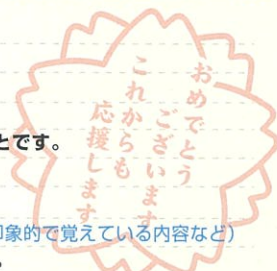 おめでとう
ございます
これからも
応援します
とです。
印象的で覚えている内容など）
。